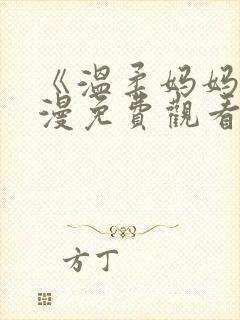 《溫柔妈妈
漫免費觀看
方丁